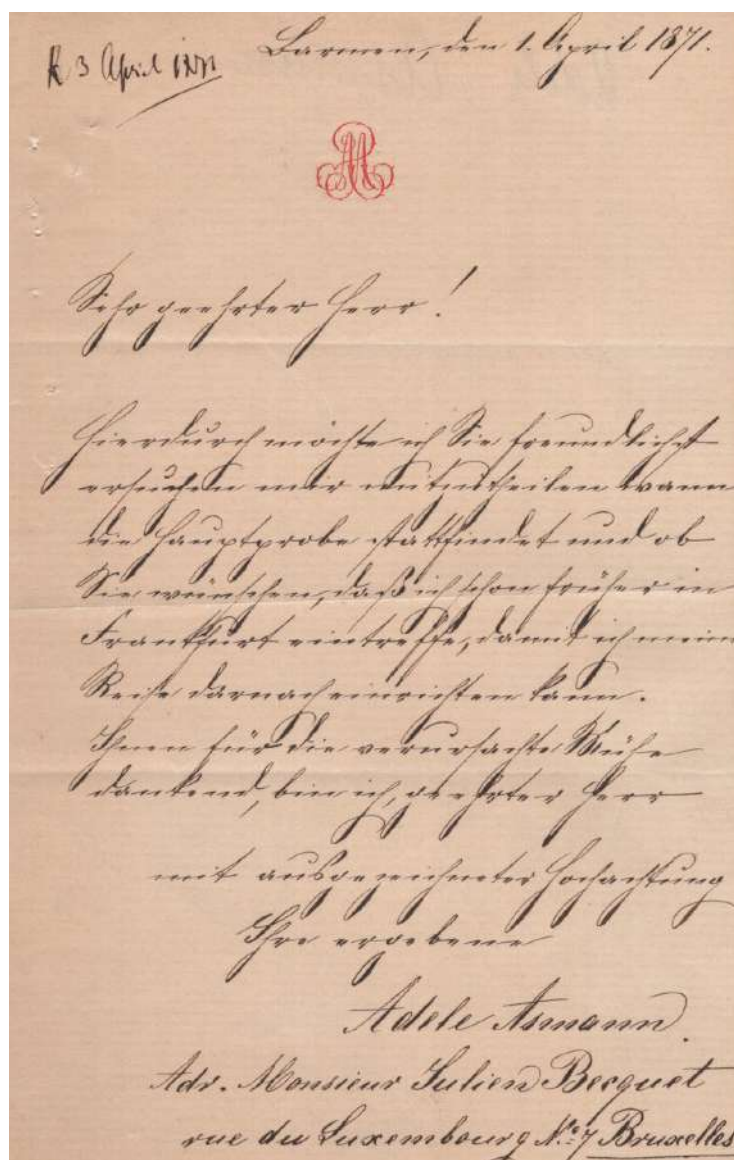 Barmen, den 1. April 1871.
R 3 April 1871
Sehr geehrter Herr!
Hierdurch möchte ich Sie freundlichst
ersuchen mir mitzutheilen wann
die Hauptprobe stattfindet und ob
Sie wünschen, daß ich schon früher in
Frankfurt eintreffe, damit ich mein
Reise darnach einrichten kann.
Ihnen für die verursachte Mühe
dankend, bin ich, geehrter Herr
mit ausgezeichneter Hochachtung
Ihre ergebene
Adele Asmann.
Adr. Monsieur Julien Becquet
rue du Luxembourg No: 7 Bruxelles